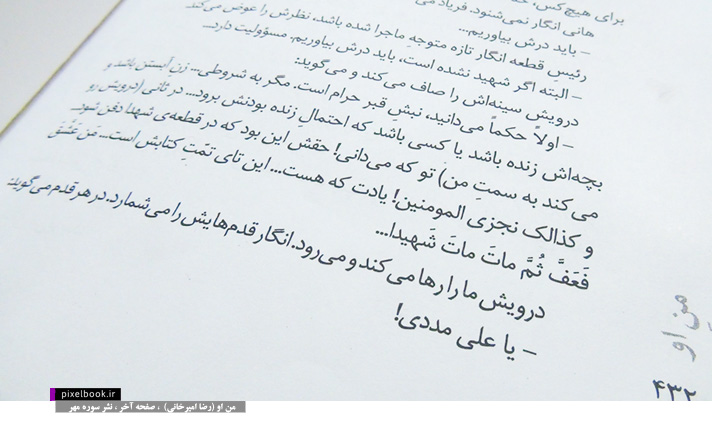 برای هیچ‌کس،
هانی انگار نمی‌شنود. فریاد می
– باید درش بیاوریم...
رئیس قطعه انگار تازه متوجهِ ماجرا شده باشد، نظرش را عوض می‌کند
– البته اگر شهید نشده است، باید درش بیاوریم. مسؤولیت دارد...
درویش سینه‌اش را صاف می‌کند و می‌گوید:
– اولاً حکماً می‌دانید، نبشِ قبر حرام است. مگر به شروطی... زنِ آبستن باشد و
بچه‌اش زنده باشد یا کسی باشد که احتمالِ زنده بودنش برود... در ثانی (درویش رو
می‌کند به سمتِ من) تو که می‌دانی! حقش این بود که در قطعه‌ی شهدا دفن شود...
و کذالک نجزی المومنین! یادت که هست... این تای تمّتِ کتابش است... مَن عَشَقَ
فَعَفَّ ثُمَّ ماتَ ماتَ شَهیدا...
درویش ما را رها می‌کند و می‌رود. انگار قدم‌هایش را می‌شمارد. در هر قدم می‌گوید:
– یا علی مددی!
منِ او
۴۳۲
pixelbook.ir
من او (رضا امیرخانی) ، صفحه آخر ، نشر سوره مهر